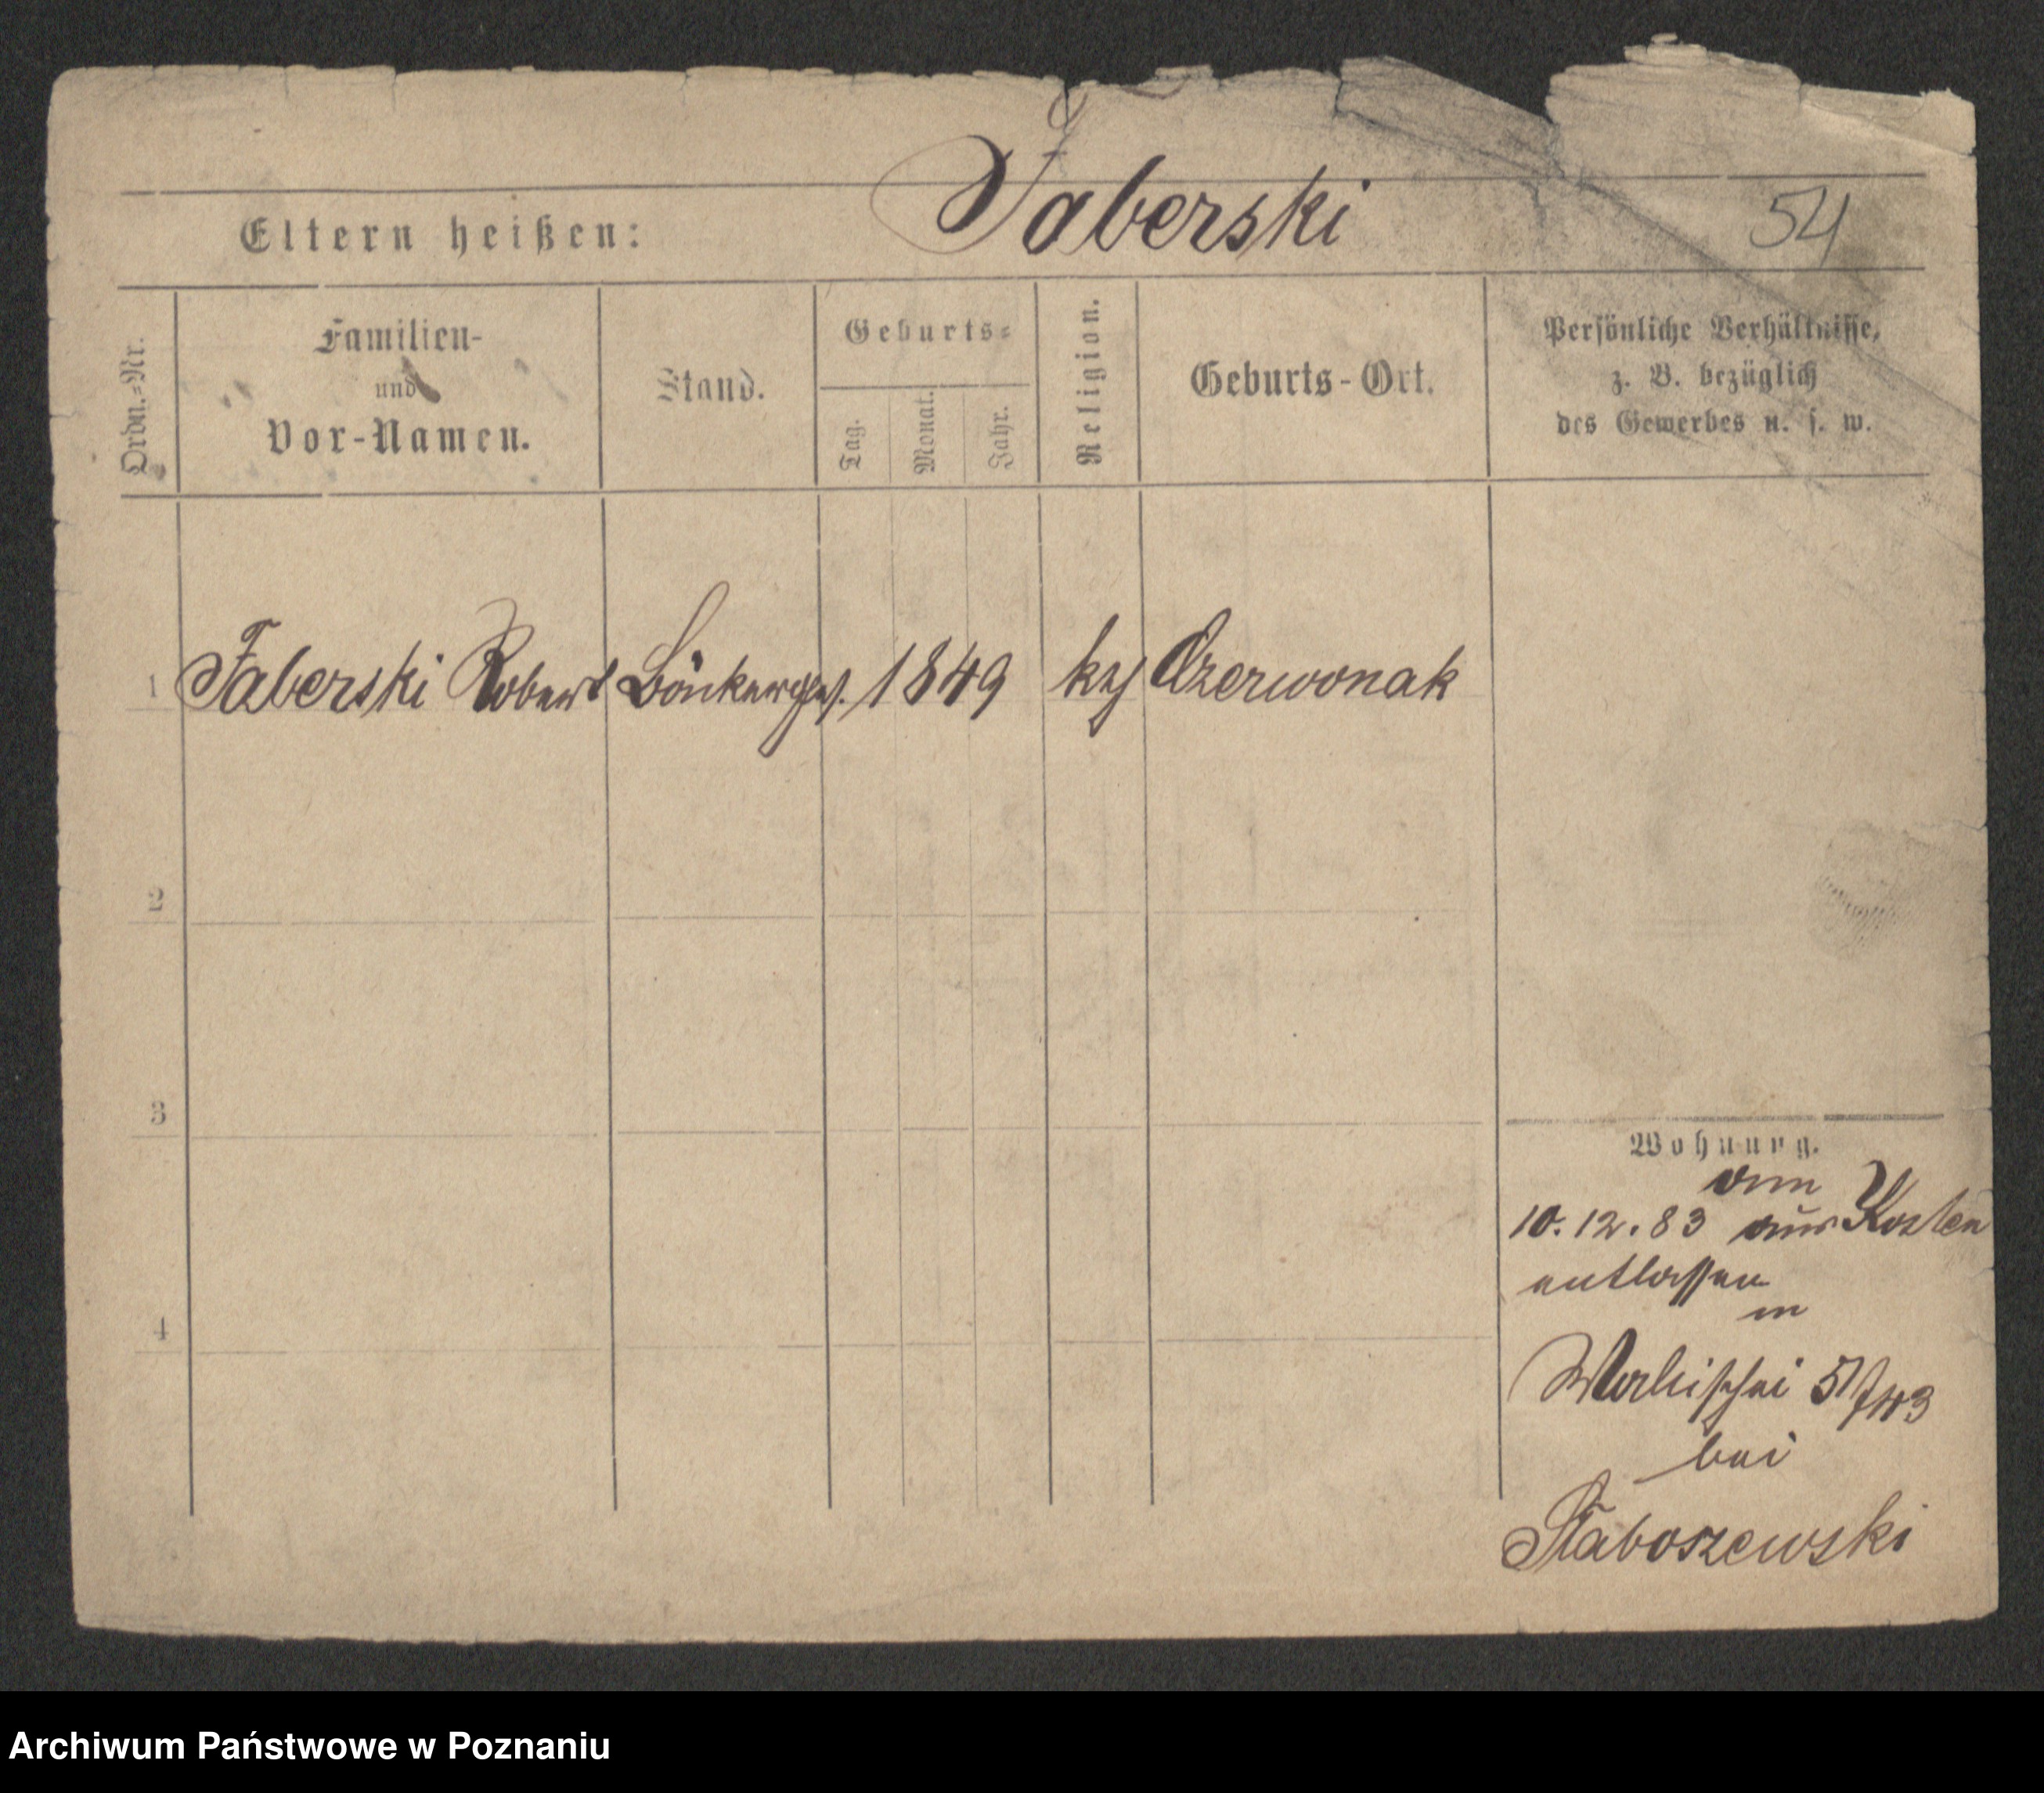 Faberski
54
Eltern heißen:
Ordn.-Nr.
Familien-
und
Vor-Namen.
Stand.
Geburts-
Tag.
Monat.
Jahr.
Religion.
Geburts-Ort.
Persönliche Verhältnisse,
z. B. bezüglich
des Gewerbes u. s. w.
1 Faberski Robert Bäckerges. 1849 Czerwonak
2
3
4
Wohnung.
am
10.12.83 aus Kosten
entlassen
in
bei
Staboszewski
Archiwum Państwowe w Poznaniu